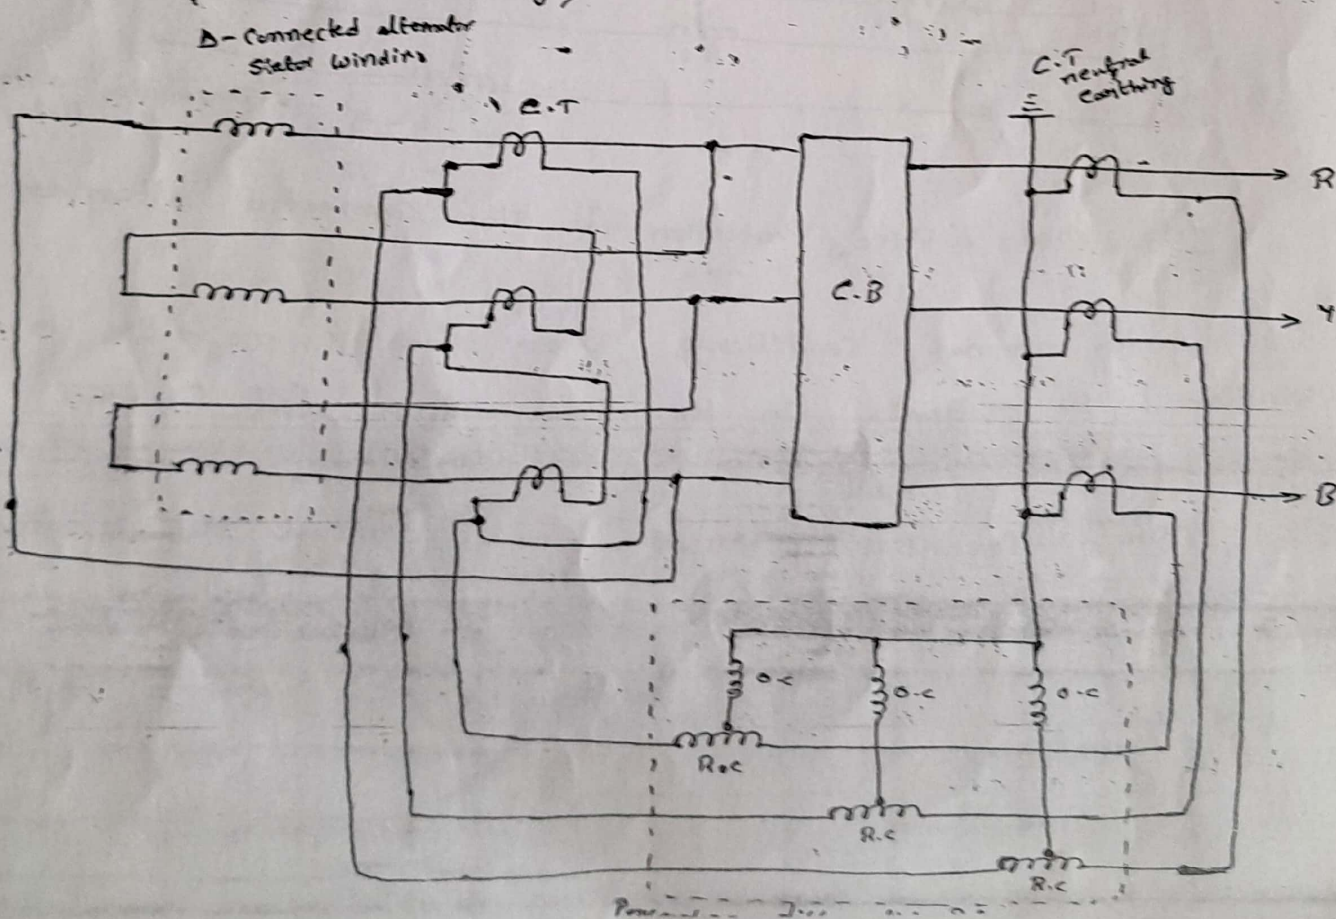 Δ-Connected alternator
Stator winding
C.T
C.T
neutral
earthing
R
C.B
Y
B
O.C
O.C
O.C
R.C
R.C
R.C